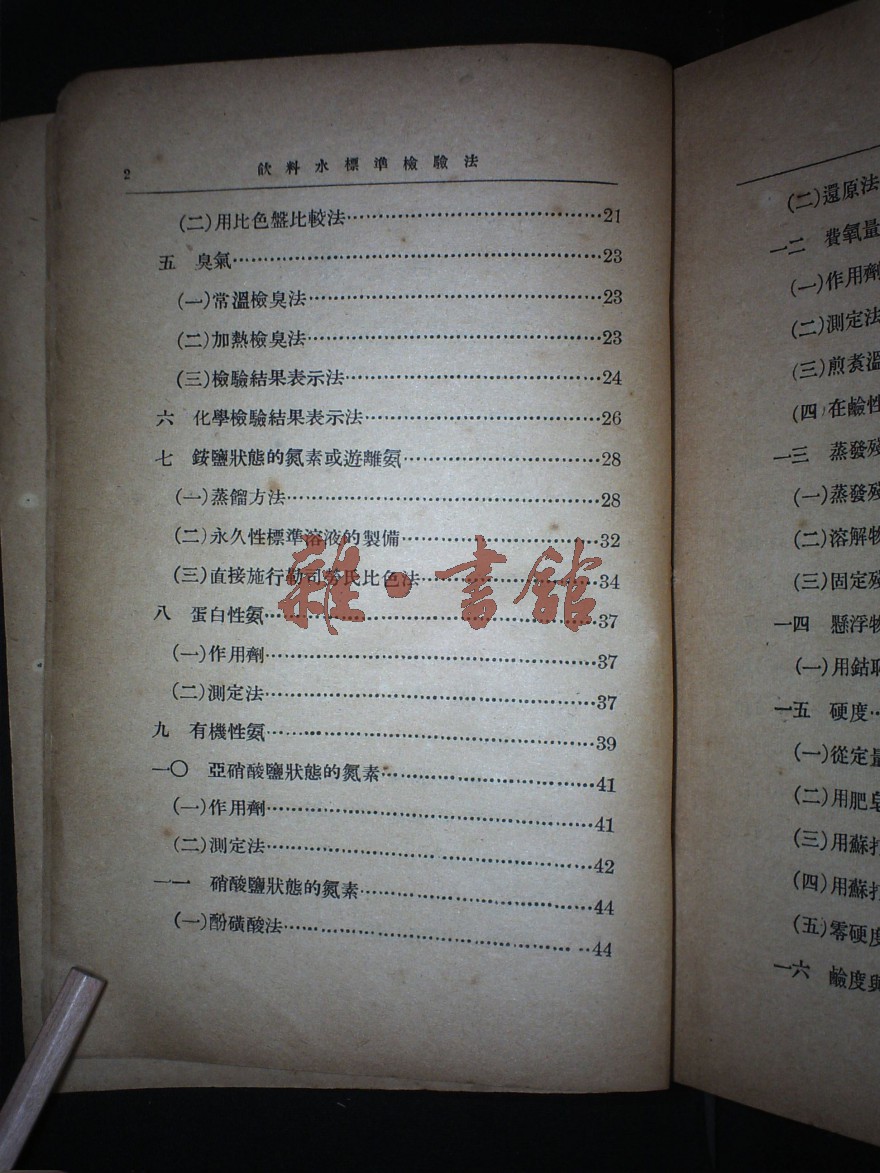 2 飲料水標準檢驗法
(二)用比色盤比較法……21
五 臭氣……23
(一)常溫檢臭法……23
(二)加熱檢臭法……23
(三)檢驗結果表示法……24
六 化學檢驗結果表示法……26
七 銨鹽狀態的氮素或遊離氨……28
(一)蒸餾方法……28
(二)永久性標準溶液的製備……32
(三)直接施行勒司勞氏比色法……34
八 蛋白性氨……37
(一)作用劑……37
(二)測定法……37
九 有機性氨……39
一〇 亞硝酸鹽狀態的氮素……41
(一)作用劑……41
(二)測定法……42
一一 硝酸鹽狀態的氮素……44
(一)酚磺酸法……44
雜·書館
(二)還原法
一二 費氧量
(一)作用劑
(二)測定法
(三)煎煮溫
(四)在鹼性
一三 蒸發殘
(一)蒸發殘
(二)溶解物
(三)固定殘
一四 懸浮物
(一)用鈷
一五 硬度…
(一)從定量
(二)用肥皂
(三)用蘇打
(四)用蘇打
(五)零硬度
一六 鹼度與